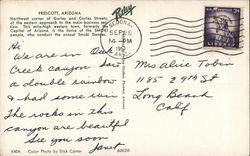 PRESCOTT, ARIZONA
Northwest corner of Gurley and Cortez Streets,
at the eastern up link to the main business section.
This mile-high western town, formerly the
Capital of Arizona, is the home of the Smoki
people, who conduct the annual Smoki Dances.
Petley
PRESCOTT
SEP 26
14-PM
ARIZ.
LIBERTY
Hi
We are in Oak
Creek canyon saw
a double rainbow
& had some rain
The rocks in this
canyon are beautiful
See you soon
Janet
Mrs Alice Tobin
1185 29th St
Long Beach
Calif
Color Photo by Slick Carter